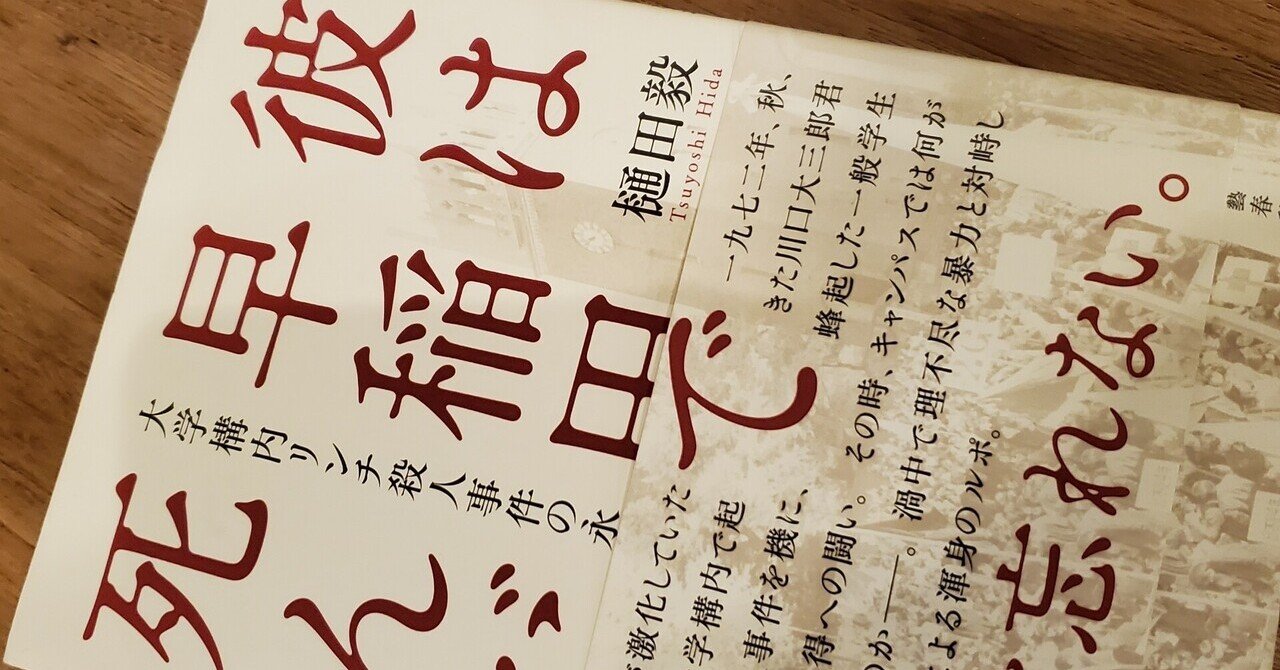 彼は
早稲田で
死んだ
大学構内リンチ殺人事件の永
樋田毅
Tsuyoshi Hida
激化していた一九七二年、秋、
学構内で起きた川口大三郎君
事件を機に、蜂起した一般学生
得への闘い。その時、キャンパスでは何が
のか――。渦中で理不尽な暴力と対峙し
による渾身のルポ。
忘れない。
藝春